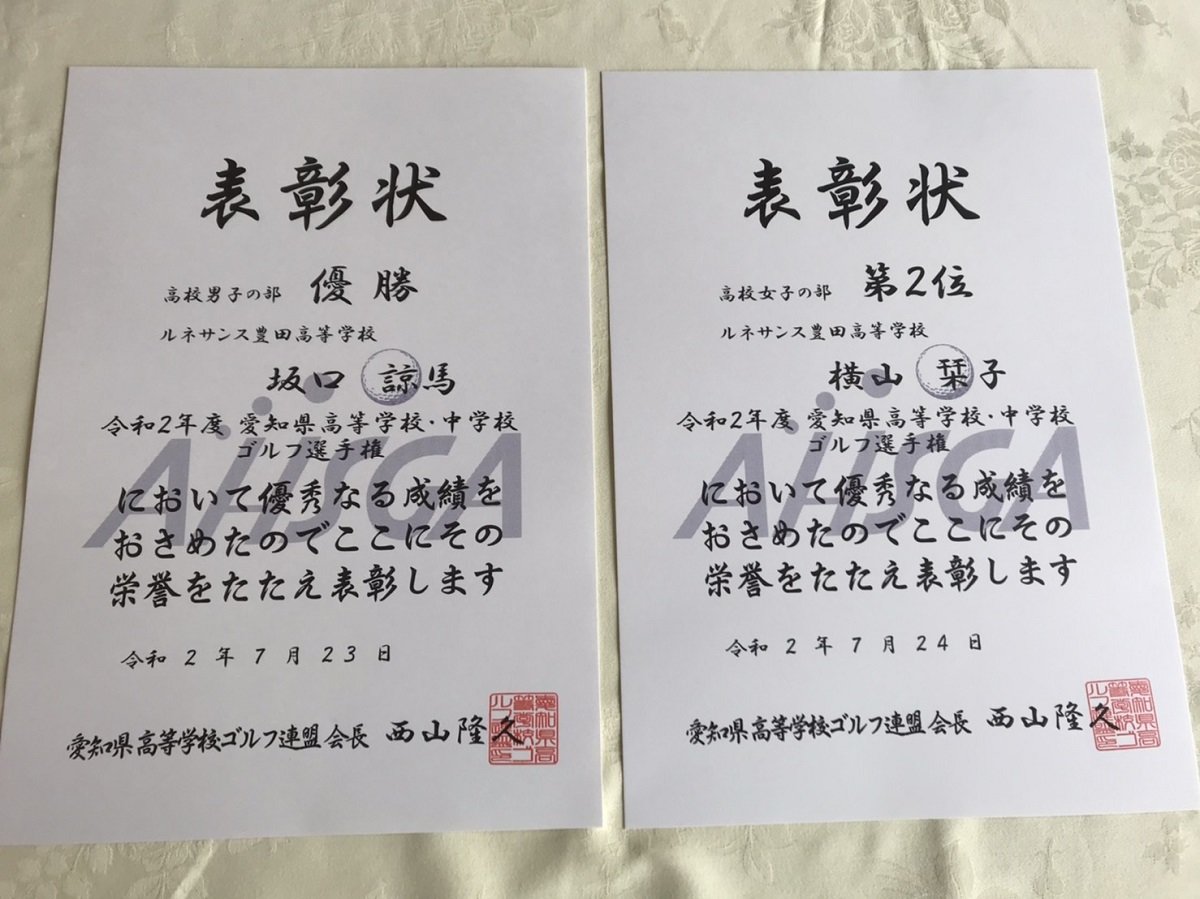 表彰状
高校男子の部 優勝
ルネサンス豊田高等学校
坂口 諒馬
令和2年度 愛知県高等学校・中学校
ゴルフ選手権
において優秀なる成績を
おさめたのでここにその
栄誉をたたえ表彰します
令和2年7月23日
愛知県高等学校ゴルフ連盟会長 西山隆久
AHSGA
表彰状
高校女子の部 第2位
ルネサンス豊田高等学校
横山 栞子
令和2年度 愛知県高等学校・中学校
ゴルフ選手権
において優秀なる成績を
おさめたのでここにその
栄誉をたたえ表彰します
令和2年7月24日
愛知県高等学校ゴルフ連盟会長 西山隆久
AHSGA